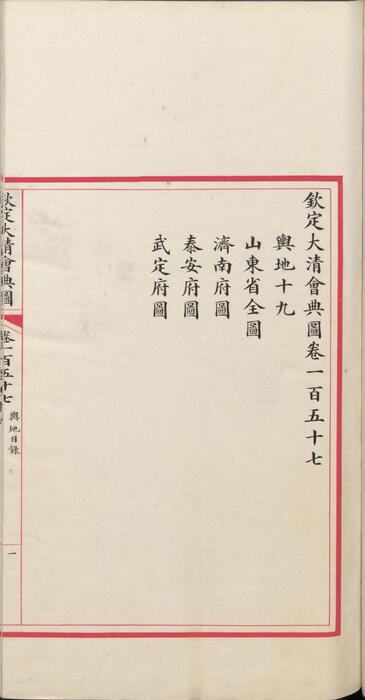 欽定大清會典圖卷一百五十七
輿地十九
山東省全圖
濟南府圖
泰安府圖
武定府圖
欽定大清會典圖
卷一百五十七
輿地目錄
一